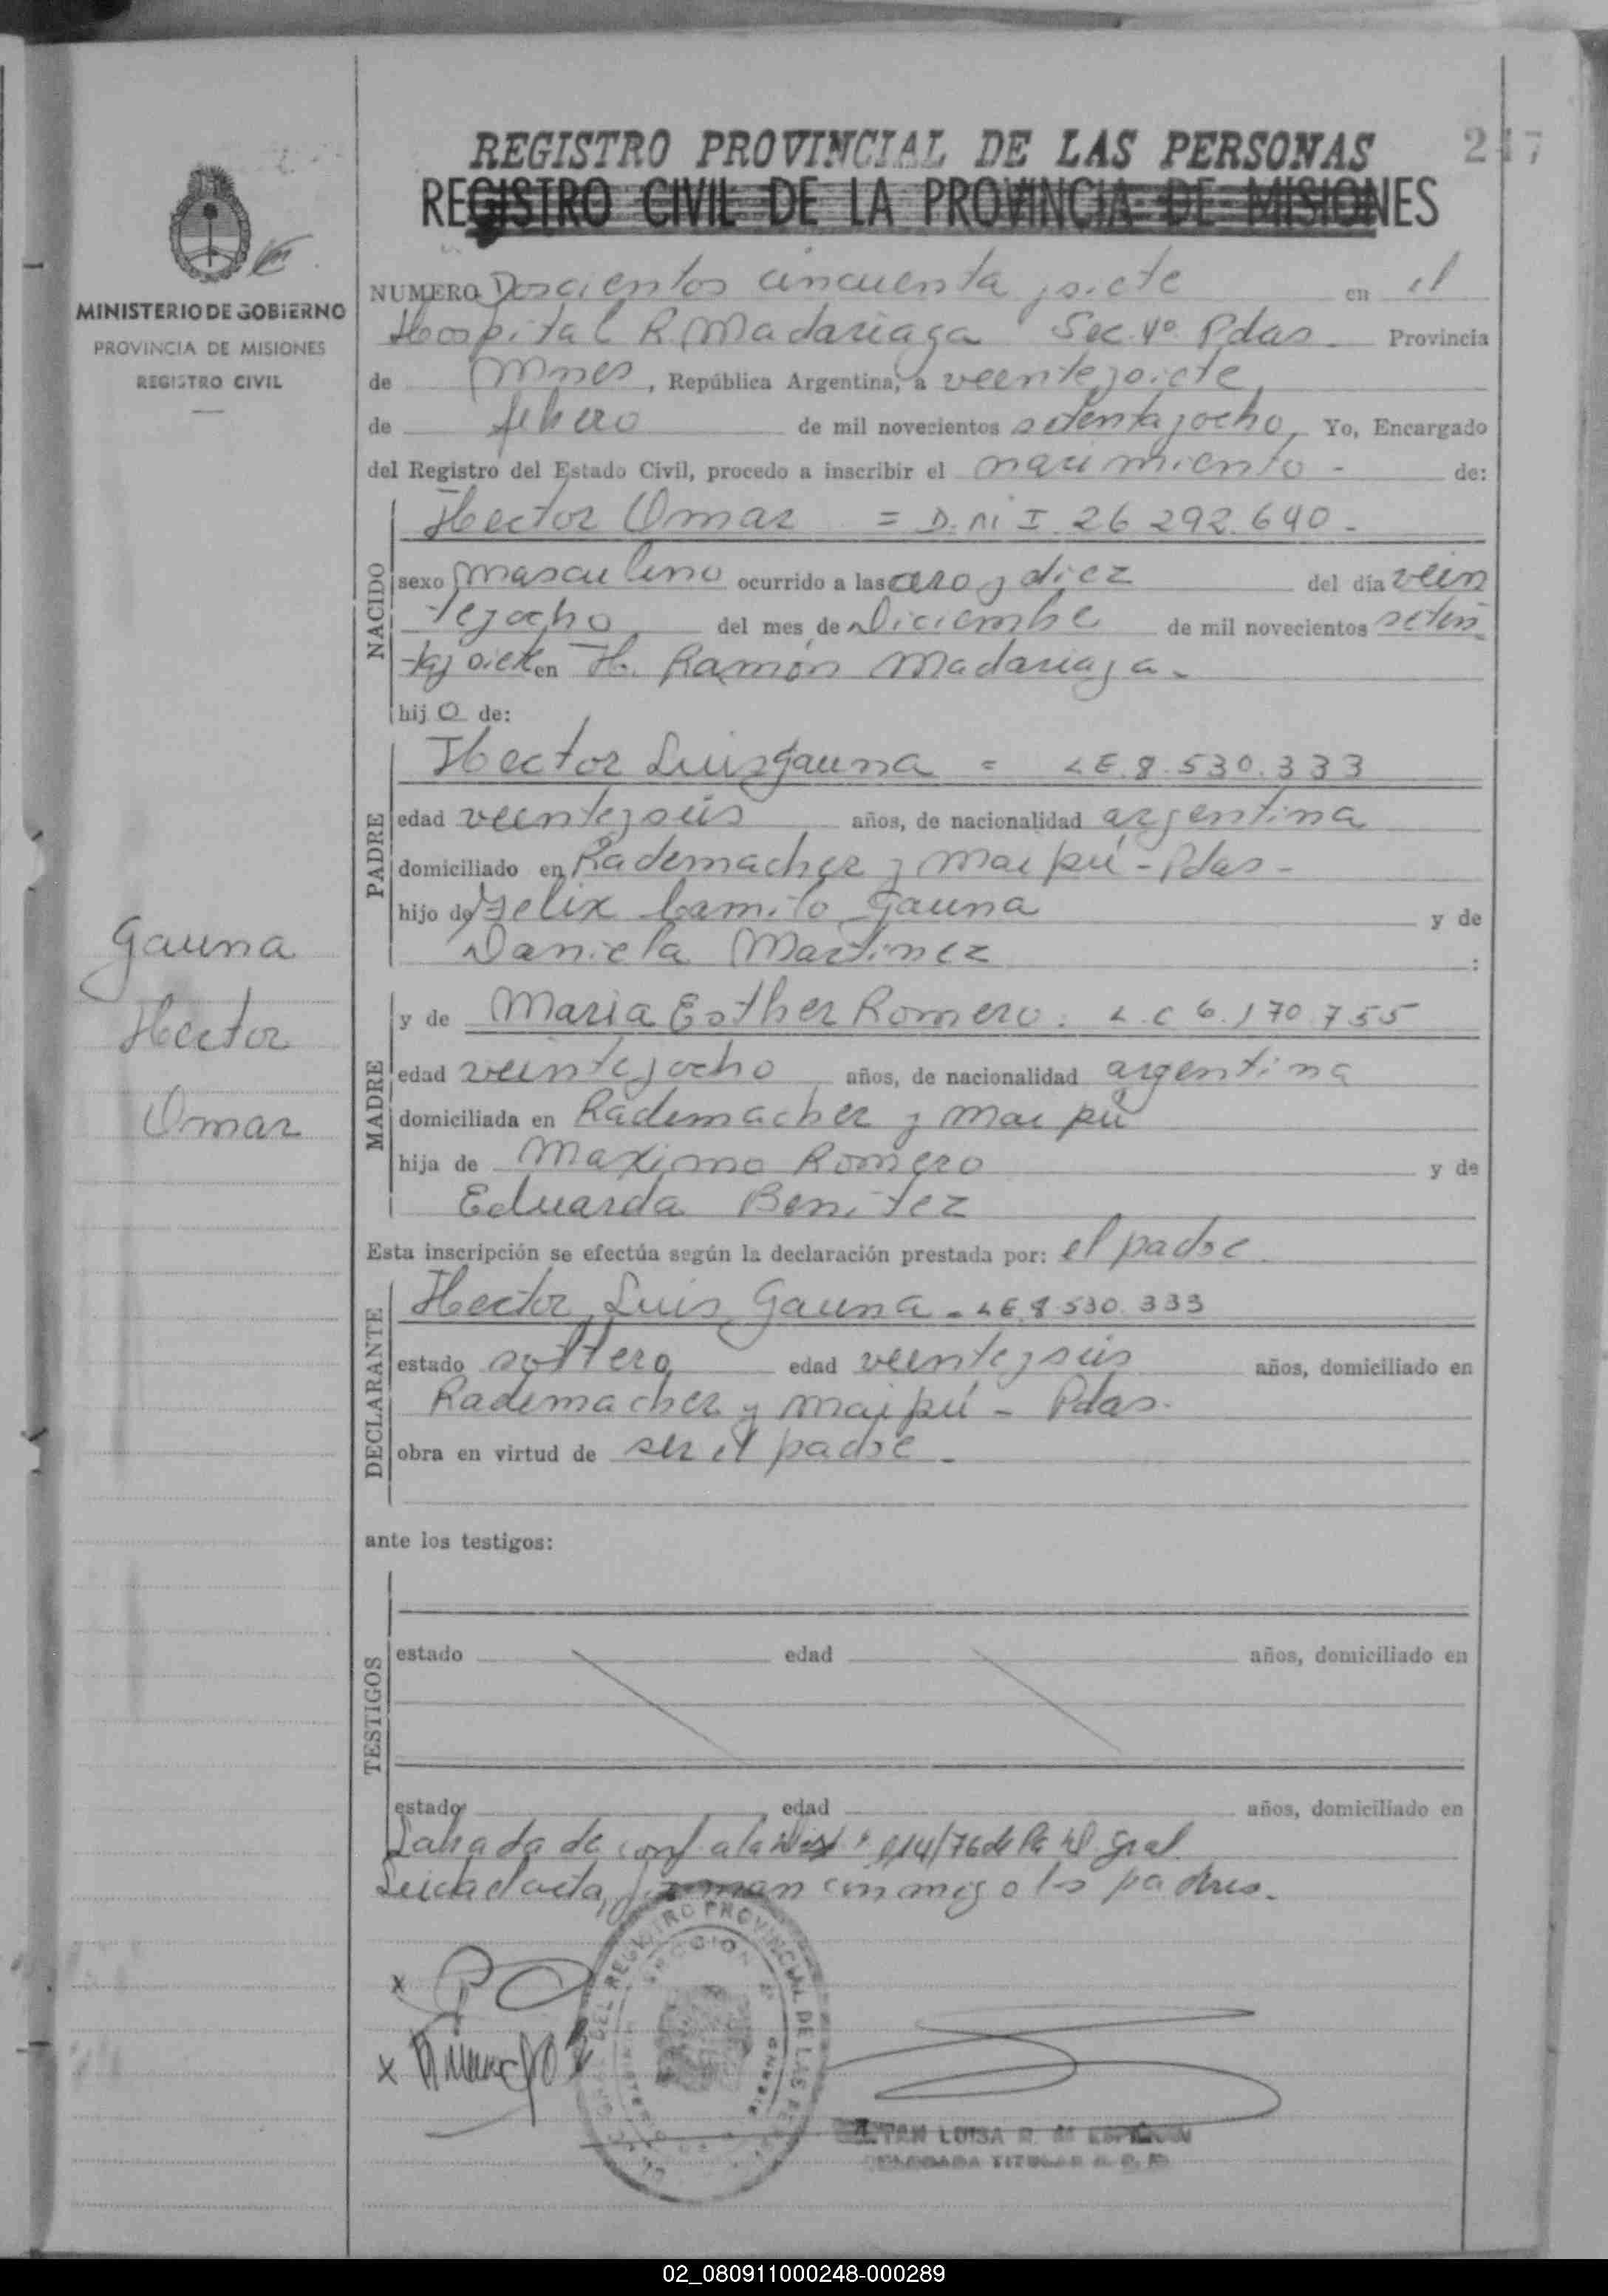 REGISTRO PROVINCIAL DE LAS PERSONAS
247
REGISTRO CIVIL DE LA PROVINCIA DE MISIONES
MINISTERIO DE GOBIERNO
PROVINCIA DE MISIONES
REGISTRO CIVIL
NUMERO Doscientos cincuenta y siete en el
Hospital R. Madariaga Sec. 4º Pdas. Provincia
de Mnes, República Argentina, a veintey siete
de febrero de mil novecientos setenta y ocho, Yo, Encargado
del Registro del Estado Civil, procedo a inscribir el nacimiento - de:
NACIDO
Hector Omar = D.N.I. 26.292.640-
sexo masculino ocurrido a las cero y diez del día vein
te y ocho del mes de Diciembre de mil novecientos seten
ta y siete en H. Ramón Madariaga-
hijo de:
PADRE
Hector Luis Gauna = L.E. 8.530.333
edad veinte y seis años, de nacionalidad argentina
domiciliado en Rademacher y Maipú - Pdas-
hijo de Felix Camilo Gauna y de
Daniela Martinez :
Gauna
Hector
Omar
MADRE
y de Maria Esther Romero. L.C 6.170.755
edad veinte y ocho años, de nacionalidad argentina
domiciliada en Rademacher y Maipú
hija de Maximo Romero y de
Eduarda Benitez
Esta inscripción se efectúa según la declaración prestada por: el padre
DECLARANTE
Hector Luis Gauna - L.E. 8.530.333
estado soltero edad veinte y seis años, domiciliado en
Rademacher y Maipú - Pdas.
obra en virtud de ser el padre -
ante los testigos:
TESTIGOS
estado edad años, domiciliado en
estado edad años, domiciliado en
Labrada de conf. a la 814/76 de la Gral.
Leida el acta, firman conmigo los padres.
x
x
DEL REGISTRO PROVINCIAL DE LAS
LUISA R.
TITULAR
02_080911000248-000289